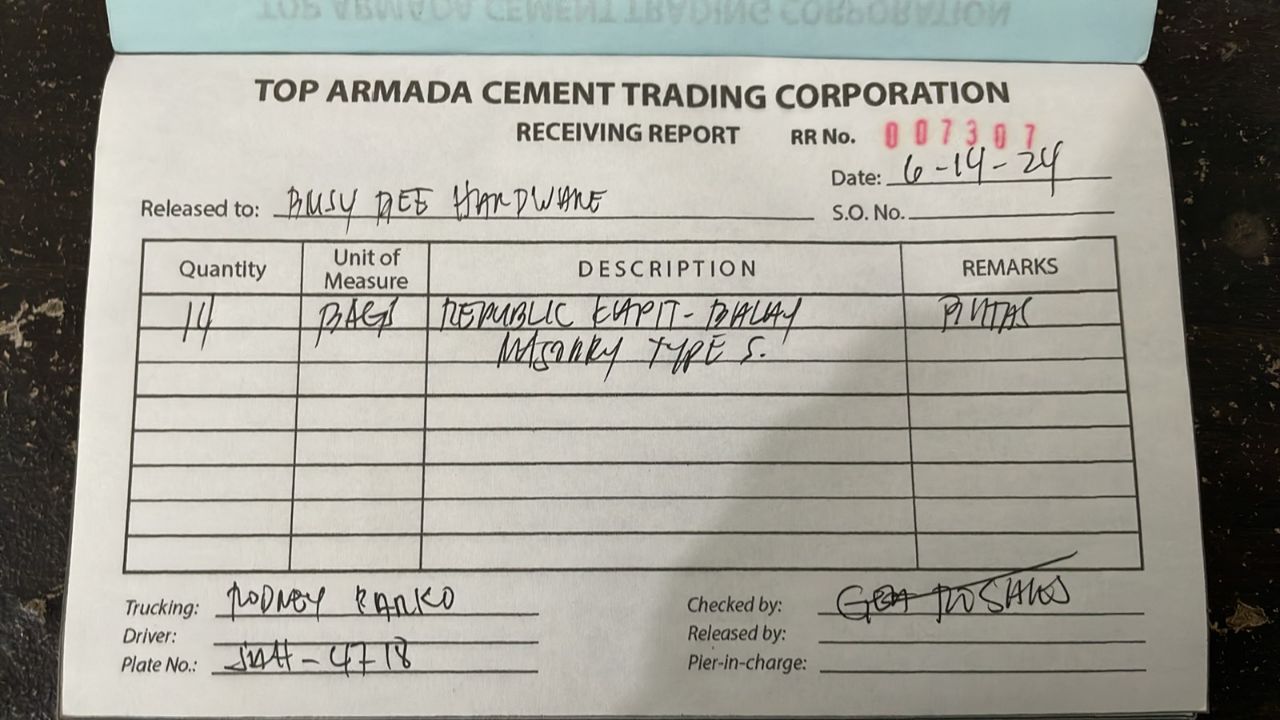 TOP ARMADA CEMENT TRADING CORPORATION
TOP ARMADA CEMENT TRADING CORPORATION
RECEIVING REPORT RR No. 007307
Date: 6-14-24
Released to: BUSY BEE HARDWARE
S.O. No.
Quantity Unit of Measure DESCRIPTION REMARKS
14 BAGS REPUBLIC KAPIT-BALAY BUTAS
MASONRY TYPE S.
Trucking: RODNEY BANKO
Checked by: GEA ROSALES
Driver:
Released by:
Plate No.: -4718
Pier-in-charge: